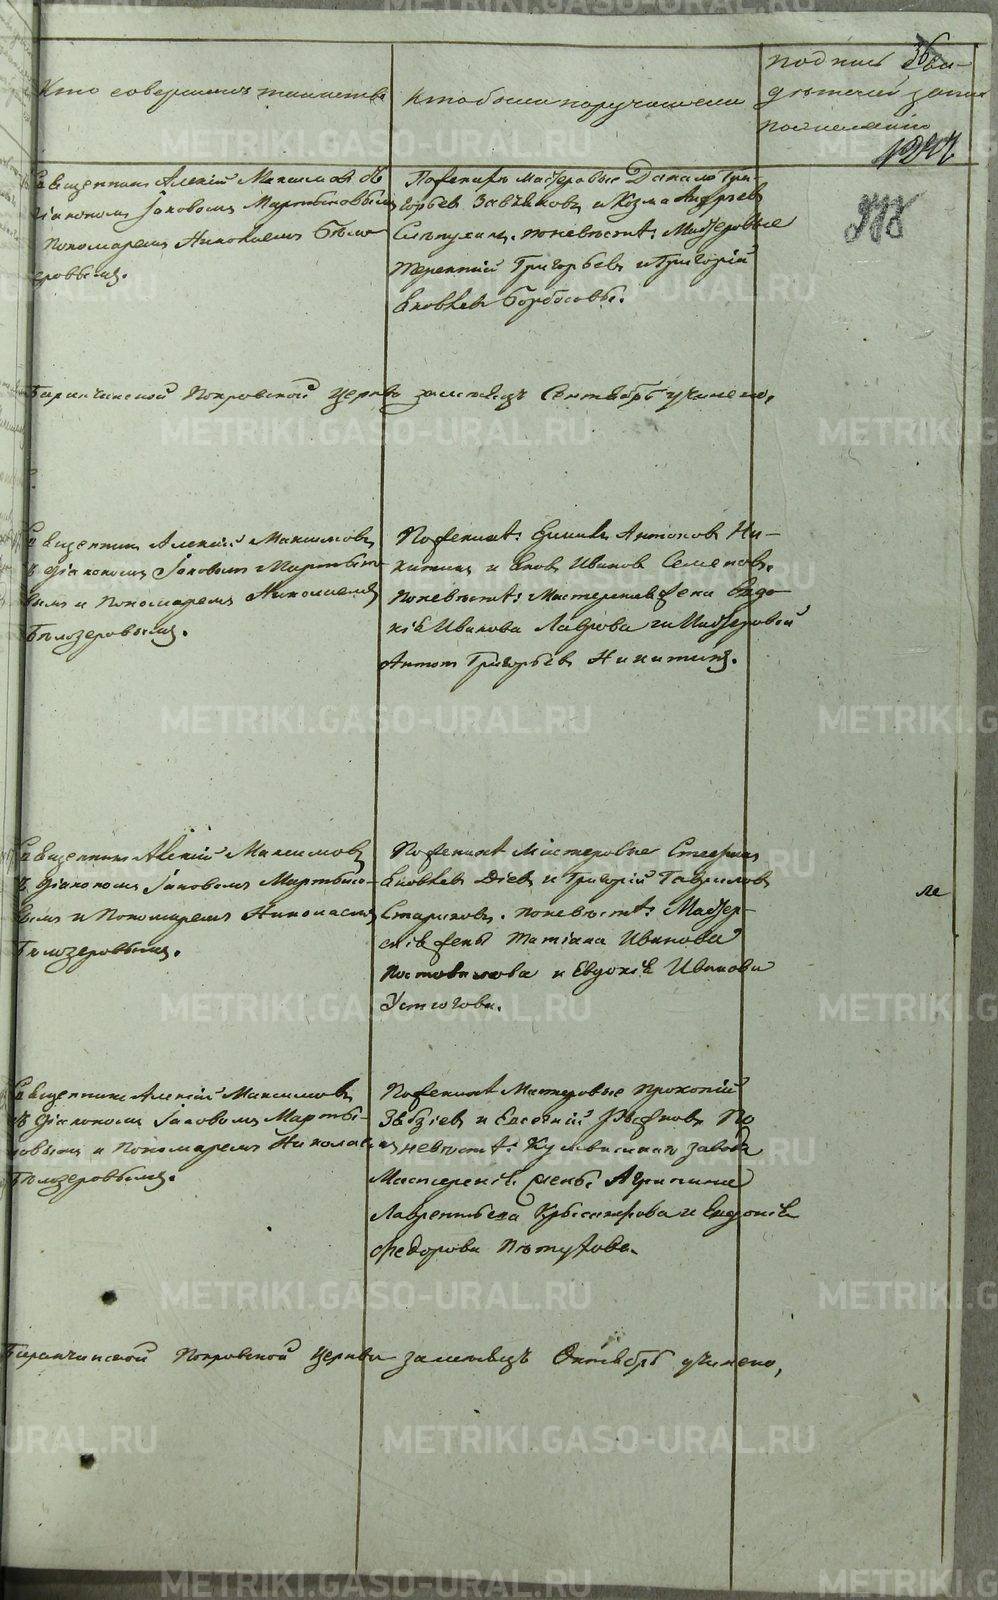 Кто совершалъ таинства
Кто были поручители
подпись сви-
дѣтелей записи
по желанію
Священникъ Алексій Максимовъ съ
діакономъ Іаковомъ Мартыновымъ
Пономаремъ Николаемъ Бѣло-
зеровымъ.
По женихѣ мастеровые Данило Гри-
горьевъ и Козма Андреевъ
по невѣстѣ: Мастеровые
Терентій Григорьевъ и Григорій
Яковлевъ Борбосовы.
Баранчинской Покровской Церкви за мѣсяцъ Сентябрь учинено,
Священникъ Алексій Максимовъ
съ діакономъ Іаковомъ Мартыно-
вымъ и Пономаремъ Николаемъ
Бѣлозеровымъ.
По женихѣ: Антоновъ Ни-
китинъ и Яковъ Ивановъ Семеновъ,
по невѣстѣ: Мастерская жена Евдо-
кія Иванова Лаврова и Мастеровой
Антонъ Григорьевъ Никитинъ.
Священникъ Алексій Максимовъ
съ діакономъ Іаковомъ Мартыно-
вымъ и Пономаремъ Николаемъ
Бѣлозеровымъ.
По женихѣ Мастеровые Степанъ
Яковлевъ Діевъ и Григорій Гавриловъ
Стариковъ. по невѣстѣ: Мастер-
скія жены Татіана Иванова
Постовалова и Евдокія Иванова
Устюгова.
Священникъ Алексій Максимовъ
съ діакономъ Іаковомъ Марты-
новымъ и Пономаремъ Николаемъ
Бѣлозеровымъ.
По женихѣ Мастеровые Прокопій
и Евсевій По
невѣстѣ: Кушвинскаго завода
Мастерскія жены Агрипина
Лаврентьева и Евдокія
Федорова Пѣтухова.
Баранчинской Покровской Церкви за мѣсяцъ Октябрь учинено,
METRIKI.GASO-URAL.RU